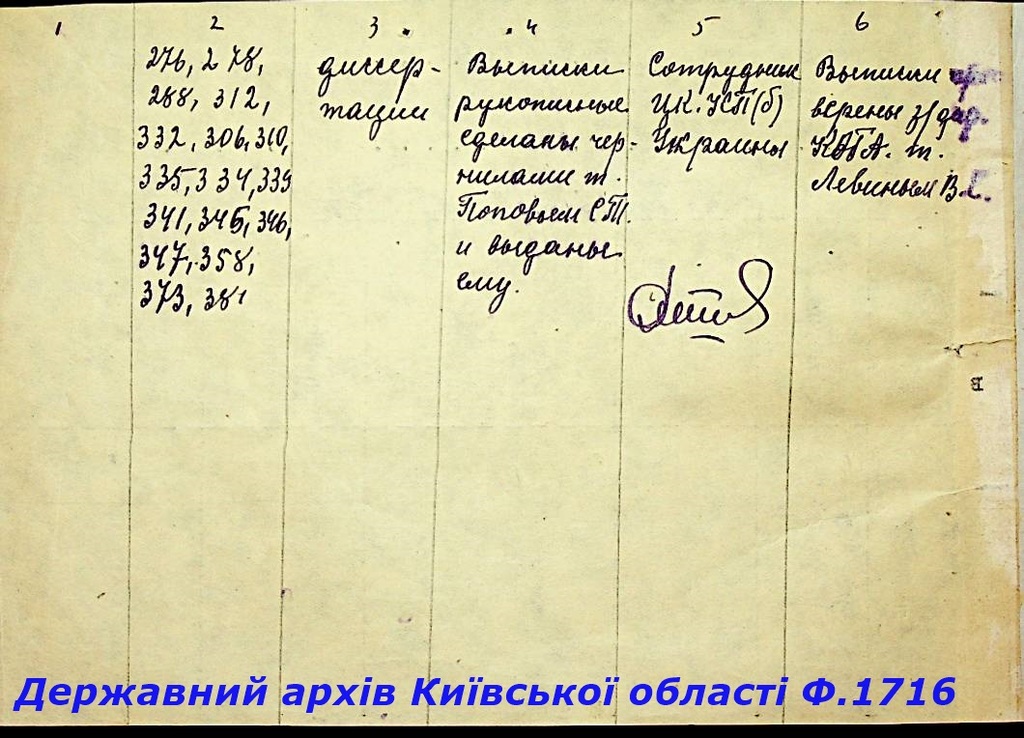 1 2 3 4 5 6
276, 278,
288, 312,
332, 306, 310,
335, 334, 339
341, 345, 346,
347, 358,
373, 381
диссер-
тации
Выписки
рукописные
сделаны чер-
нилами т.
Поповым С.Т.
и выданы
ему.
Сотрудник
ЦК. КП(б)
Украины
Выписки
верены з/дир.
КОГА. т.
Левиным В.С.
В
Державний архів Київської області Ф.1716